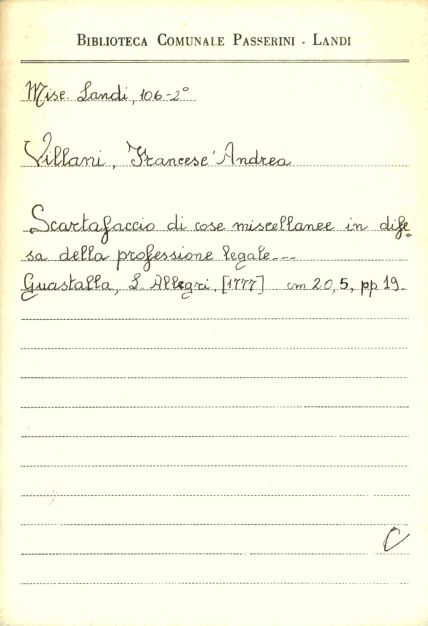 BIBLIOTECA COMUNALE PASSERINI - LANDI
Misc. Landi, 106-2°
Villani, Francesc'Andrea
Scartafaccio di cose miscellanee in dife-
sa della professione legale---
Guastalla, L. Allegri, [1777] cm 20,5, pp 19.
C